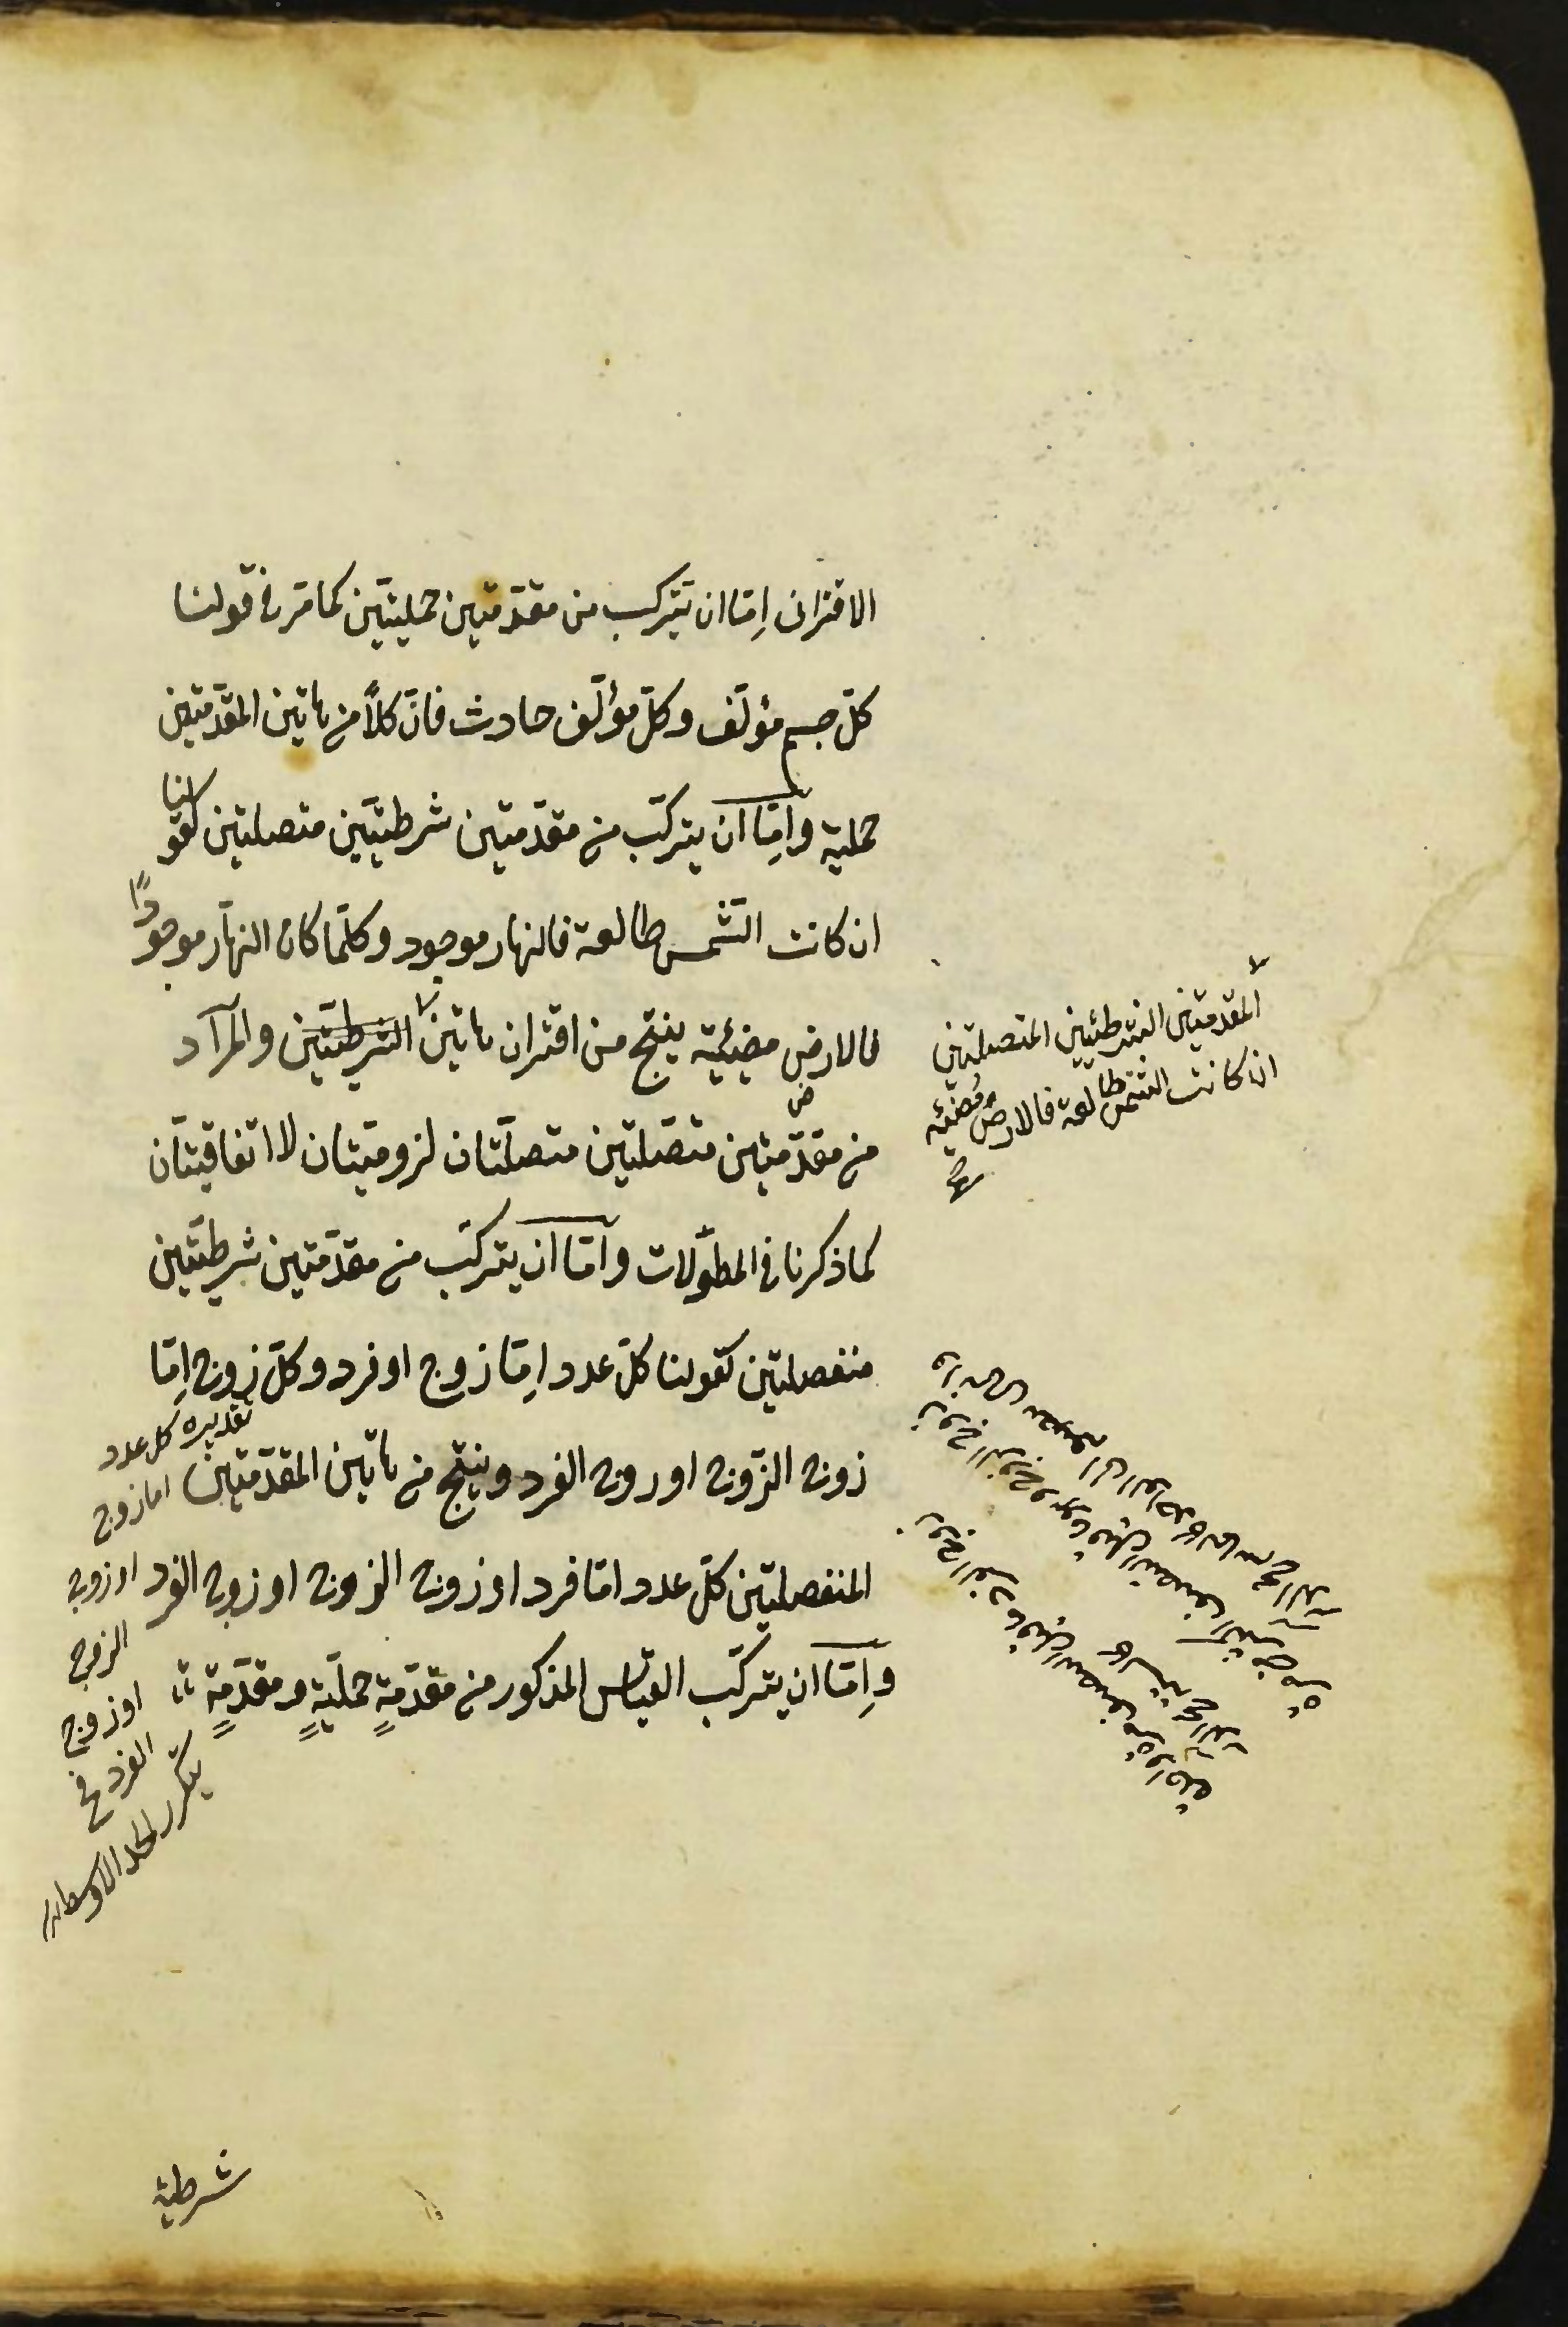 الاقترانى اِمّا ان يتركب من مقدّمتين حمليتين كما مرّ فى قولنا
كلّ جسم مؤلّف وكلّ مؤلّف حادث فانّ كلاًّ من هاتين المقدّمتين
حملية واِمّا ان يتركّب من مقدّمتين شرطيتين متصلتين كقولنا
ان كانت الشّمس طالعة فالنهار موجود وكلّما كان النهار موجودًا
فالارض مضيئية ينتج من اقتران هاتين الشرطيّتين والمراد
من مقدّمتين متّصلتين متصلّتان لزوميّتان لا اتفاقيتان
كما ذكرنا فى المطوّلات وامّا ان يتركّب من مقدّمتين شرطيّتين
منفصلتين كقولنا كلّ عدد اِمّا زوج او فرد وكلّ زوج اِمّا
زوج الزّوج او زوج الفرد وينتج من هاتين المقدّمتين
المنفصلتين كلّ عدد امّا فرد او زوج الزوج او زوج الفرد
واِمّا ان يتركّب القياس المذكور من مقدّمةٍ حمليّةٍ ومقدّمةٍ
المقدمتين الشرطيتين المتصلتين
ان كانت الشمس طالعة فالارض مضيئه
تقديره كل عدد
اما زوج
او زوج
الزوج
او زوج
الفرد فح
يتكرر الحد الاوسط
شرطية